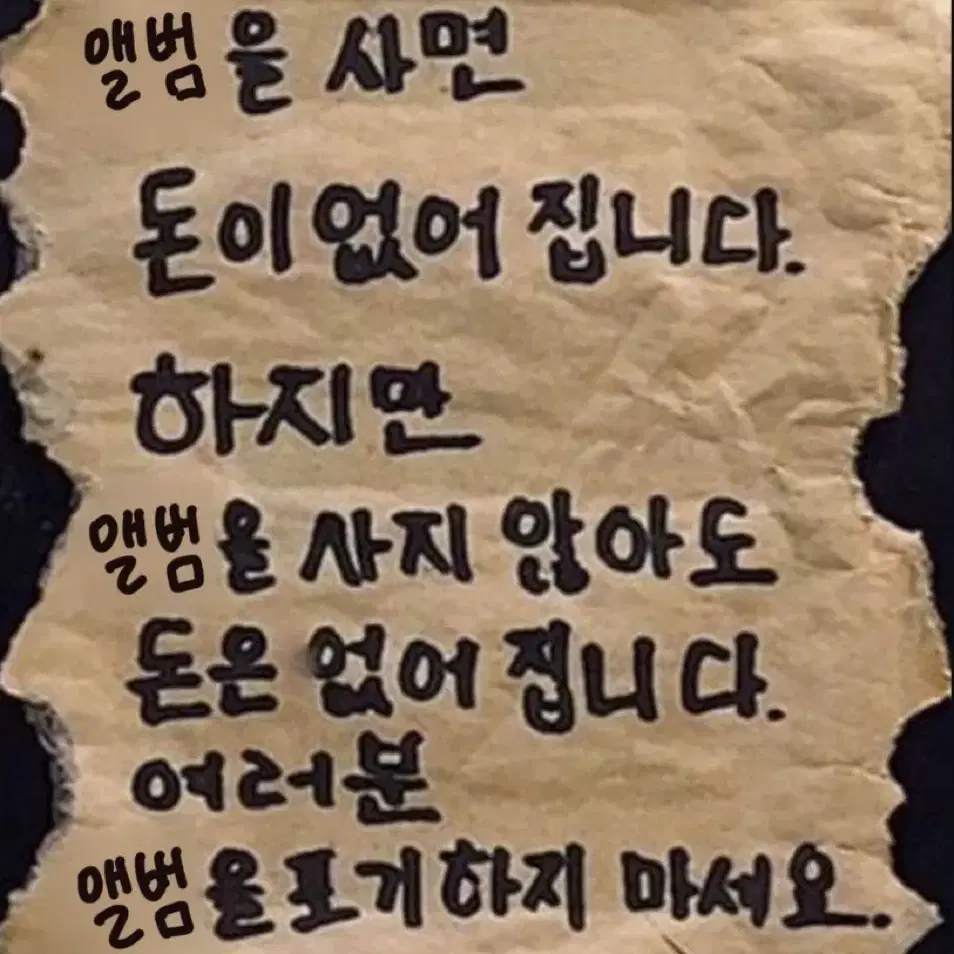 앨범을 사면
돈이 없어 집니다.
하지만
앨범을 사지 않아도
돈은 없어 집니다.
여러분
앨범을 포기하지 마세요.